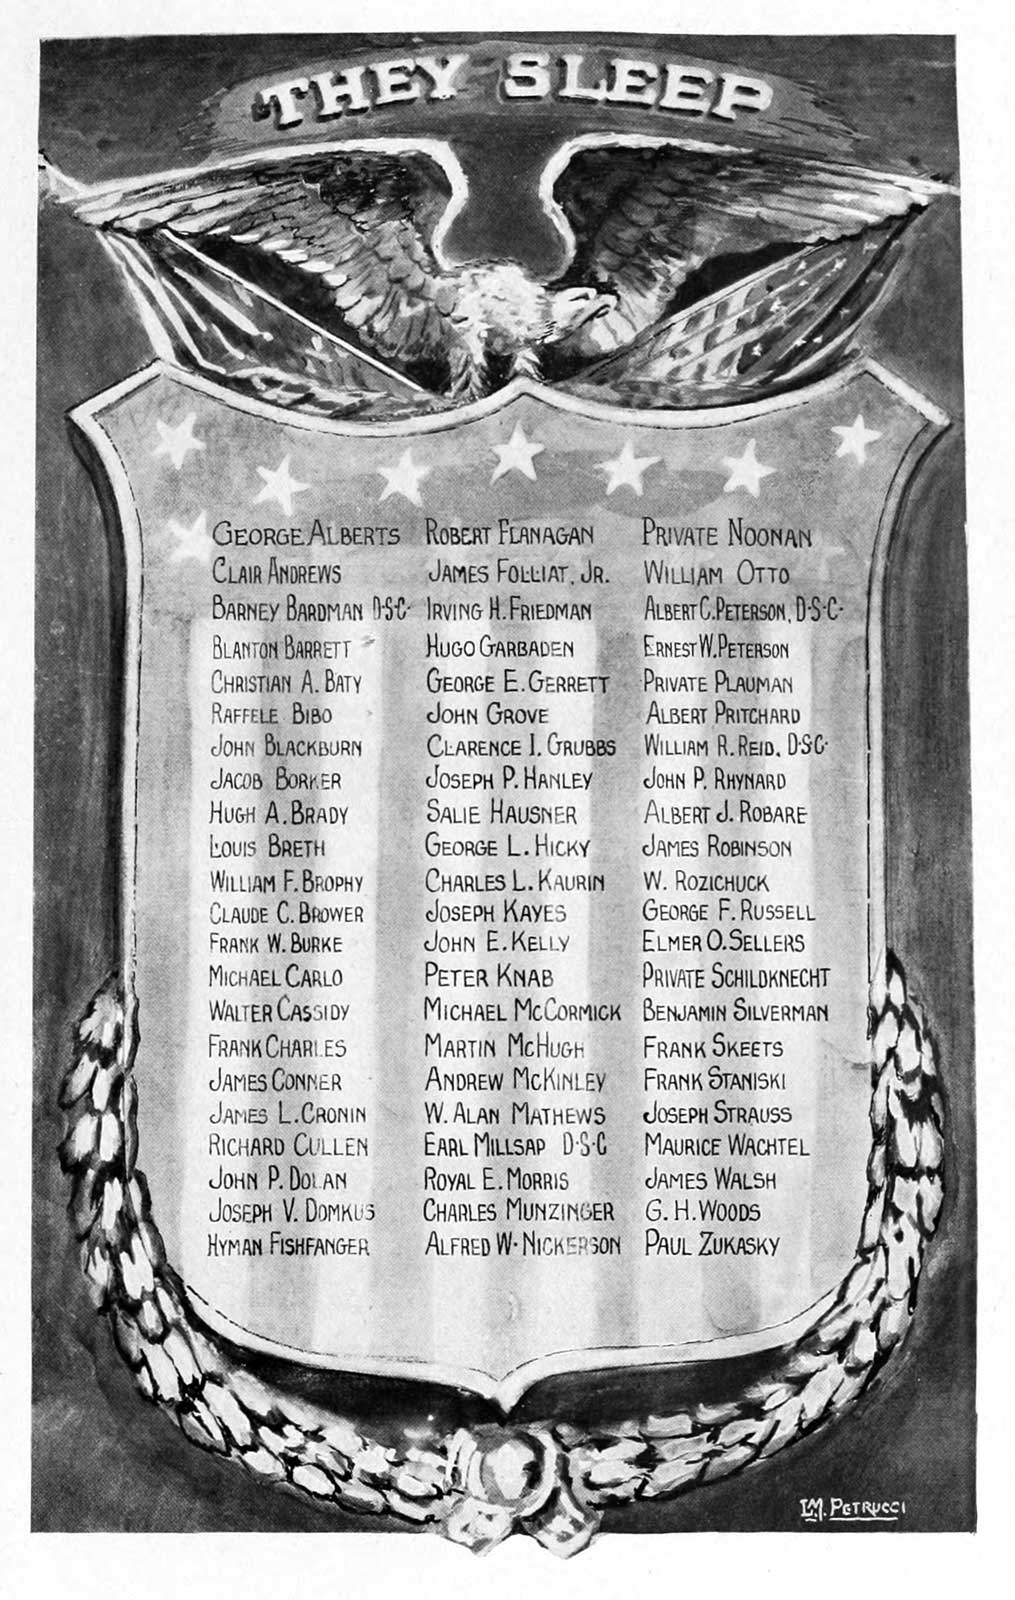 THEY SLEEP
GEORGE ALBERTS
CLAIR ANDREWS
BARNEY BARDMAN D·S·C·
BLANTON BARRETT
CHRISTIAN A. BATY
RAFFELE BIBO
JOHN BLACKBURN
JACOB BORKER
HUGH A. BRADY
LOUIS BRETH
WILLIAM F. BROPHY
CLAUDE C. BROWER
FRANK W. BURKE
MICHAEL CARLO
WALTER CASSIDY
FRANK CHARLES
JAMES CONNER
JAMES L. CRONIN
RICHARD CULLEN
JOHN P. DOLAN
JOSEPH V. DOMKUS
HYMAN FISHFANGER
ROBERT FLANAGAN
JAMES FOLLIAT, JR.
IRVING H. FRIEDMAN
HUGO GARBADEN
GEORGE E. GERRETT
JOHN GROVE
CLARENCE I. GRUBBS
JOSEPH P. HANLEY
SALIE HAUSNER
GEORGE L. HICKY
CHARLES L. KAURIN
JOSEPH KAYES
JOHN E. KELLY
PETER KNAB
MICHAEL MCCORMICK
MARTIN MCHUGH
ANDREW MCKINLEY
W. ALAN MATHEWS
EARL MILLSAP D·S·C
ROYAL E. MORRIS
CHARLES MUNZINGER
ALFRED W. NICKERSON
PRIVATE NOONAN
WILLIAM OTTO
ALBERT C. PETERSON, D·S·C·
ERNEST W. PETERSON
PRIVATE PLAUMAN
ALBERT PRITCHARD
WILLIAM R. REID, D·S·C·
JOHN P. RHYNARD
ALBERT J. ROBARE
JAMES ROBINSON
W. ROZICHUCK
GEORGE F. RUSSELL
ELMER O. SELLERS
PRIVATE SCHILDKNECHT
BENJAMIN SILVERMAN
FRANK SKEETS
FRANK STANISKI
JOSEPH STRAUSS
MAURICE WACHTEL
JAMES WALSH
G. H. WOODS
PAUL ZUKASKY
L.M. PETRUCCI